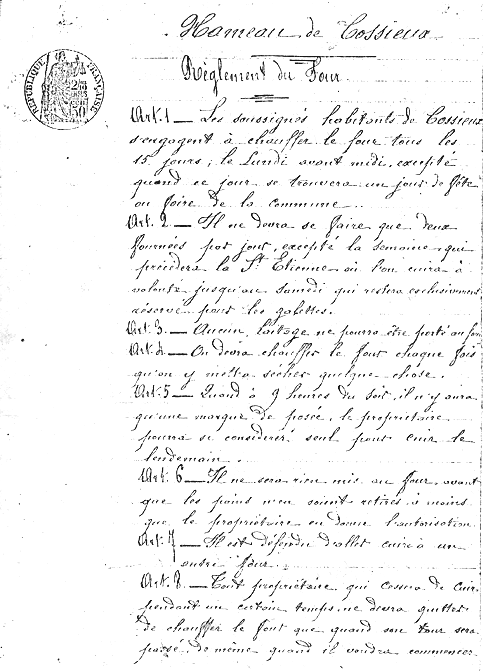 Hameau de Cossieux
Règlement du Four
RÉPUBLIQUE FRANÇAISE
Art. 1 — Les soussignés habitants de Cossieux
s'engagent à chauffer le four tous les
15 jours, le Lundi avant midi, excepté
quand ce jour se trouvera un jour de fête
ou foire de la commune.
Art. 2 — Il ne devra se faire que deux
fournées par jour, excepté la semaine qui
précèdera la St Etienne où l'on cuira à
volonté jusqu'au samedi qui restera exclusivement
réservé pour les galettes.
Art. 3. — Aucun laitage ne pourra être porté au four
Art. 4. — On devra chauffer le four chaque fois
qu'on y mettra sécher quelque chose.
Art. 5 — Quand à 9 heures du soir, il n'y aura
qu'une marque de posée, le propriétaire
pourra se considérer seul pour cuir le
lendemain.
Art. 6 — Il ne sera rien mis au four, avant
que les pains n'en soient retirés à moins
que le propriétaire en donne l'autorisation
Art. 7 — Il est défendu d'aller cuire à un
autre four.
Art. 8. — Tout propriétaire qui cessera de cuir
pendant un certain temps ne devra quitter
de chauffer le four que quand son tour sera
passé, de même quand il voudra commencer